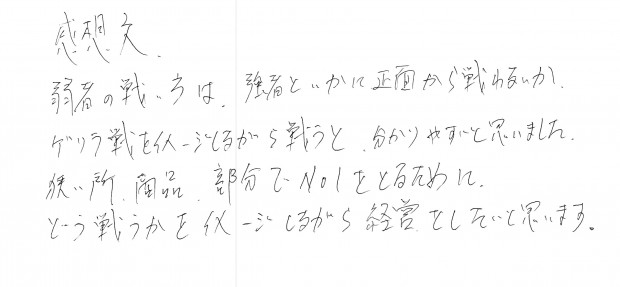 感想文.
弱者の戦い方は、強者といかに正面から戦わないか.
ゲリラ戦をイメージしながら戦うと、分かりやすいと思いました.
狭い所、商品、部分でNo1をとるために.
どう戦うかをイメージしながら経営をしたいと思います。